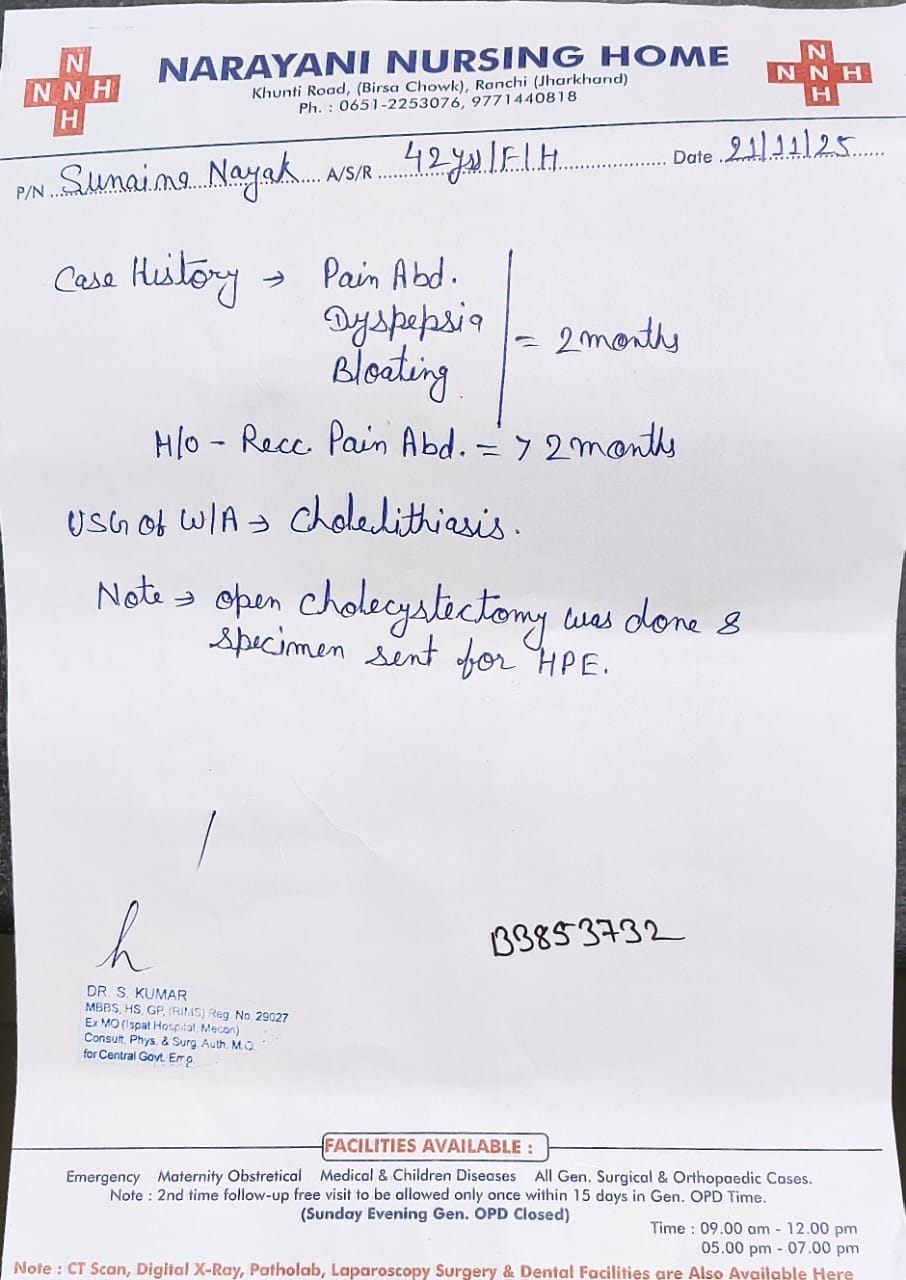 N
N N H
H
NARAYANI NURSING HOME
Khunti Road, (Birsa Chowk), Ranchi (Jharkhand)
Ph. : 0651-2253076, 9771440818
N
N N H
H
P/N Sunaina Nayak A/S/R 42yrs/F/H Date 21/11/25
Case History → Pain Abd.
Dyspepsia
Bloating
= 2 months
H/o - Recc. Pain Abd. = > 2 months
USG of W/A → Choledithiasis.
Note → open cholecystectomy was done &
specimen sent for HPE.
B3853732
DR. S. KUMAR
MBBS, HS, GP, (RIMS) Reg. No. 29027
Ex MO (Ispat Hospital, Mecon)
Consult. Phys. & Surg. Auth. M.O.
for Central Govt. Emp.
FACILITIES AVAILABLE :
Emergency Maternity Obstretical Medical & Children Diseases All Gen. Surgical & Orthopaedic Cases.
Note : 2nd time follow-up free visit to be allowed only once within 15 days in Gen. OPD Time.
(Sunday Evening Gen. OPD Closed)
Time : 09.00 am - 12.00 pm
05.00 pm - 07.00 pm
Note : CT Scan, Digital X-Ray, Patholab, Laparoscopy Surgery & Dental Facilities are Also Available Here